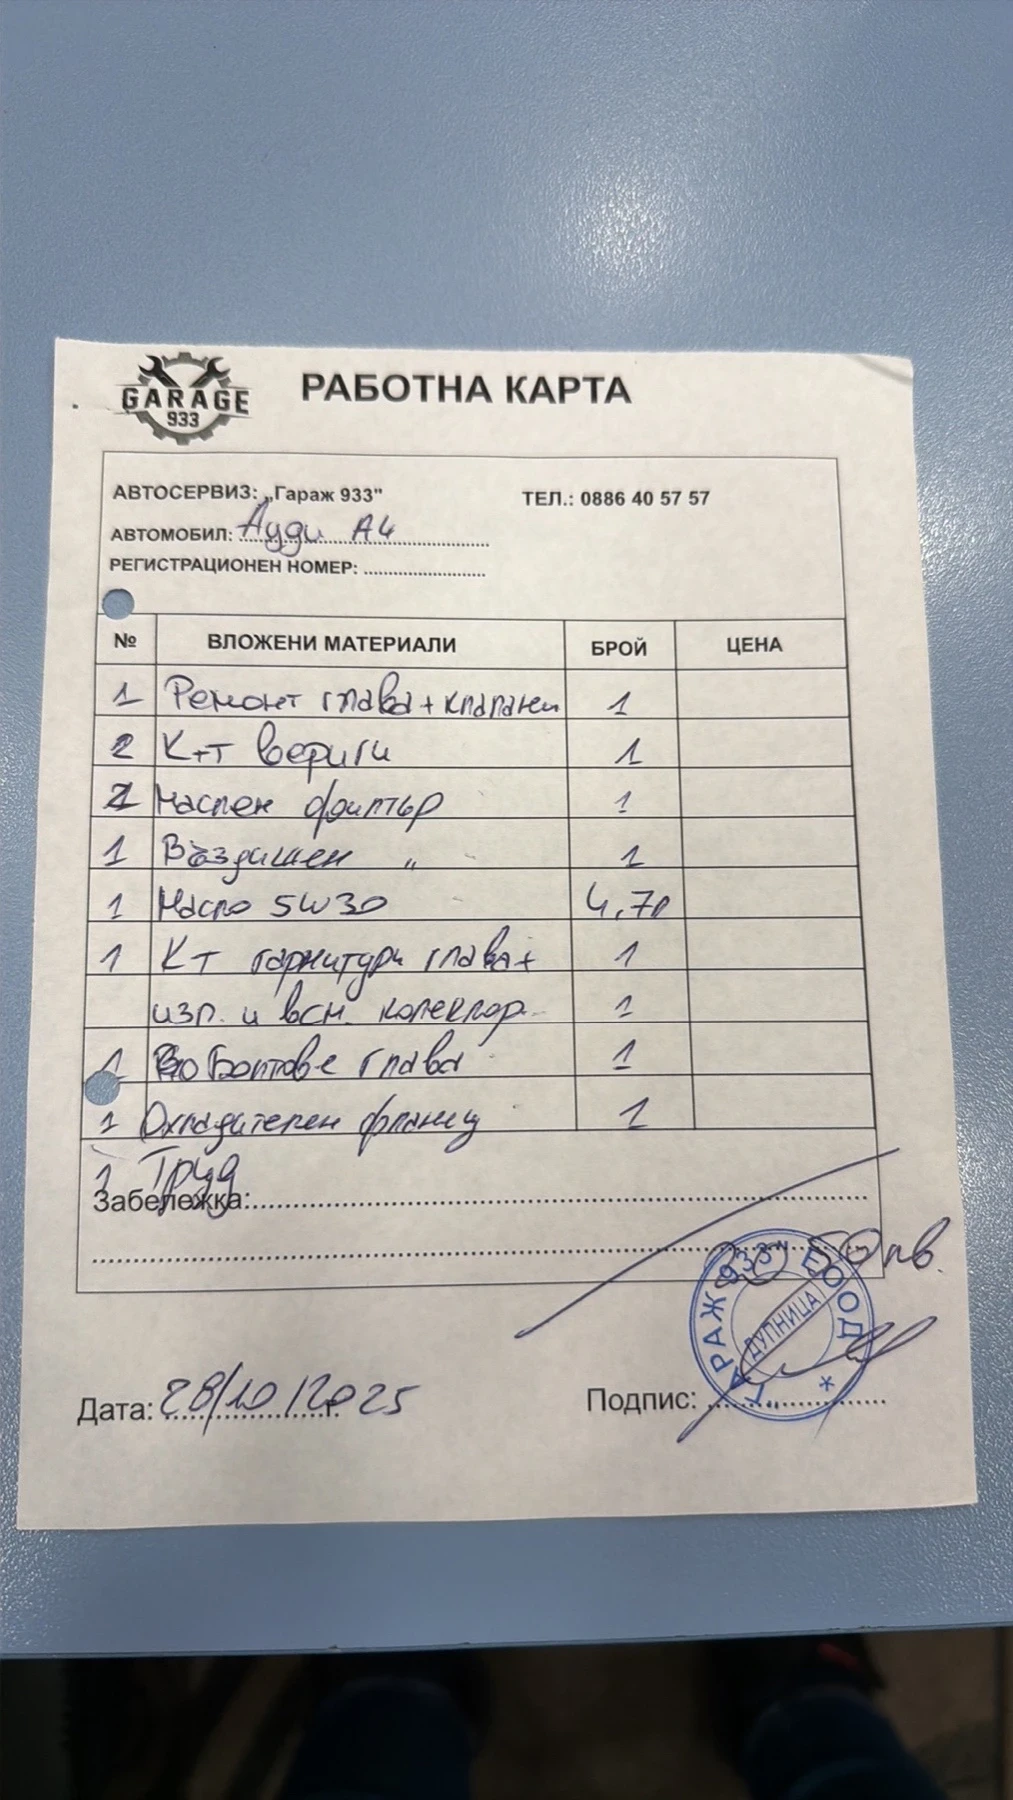 GARAGE
933
РАБОТНА КАРТА
АВТОСЕРВИЗ: „Гараж 933" ТЕЛ.: 0886 40 57 57
АВТОМОБИЛ: Ауди А4
РЕГИСТРАЦИОНЕН НОМЕР:
№ ВЛОЖЕНИ МАТЕРИАЛИ БРОЙ ЦЕНА
1 Ремонт глава + клапани 1
2 К-т вериги 1
1 Маслен филтър 1
1 Въздушен " 1
1 Масло 5W30 4,7л
1 К-т гарнитури глава + 1
изп. и всм. колектор. 1
1 Болтове глава 1
1 Охладителен фланец 1
1 Труд
Забележка:
50 лв.
Дата: 28/10/2025 г.
Подпис:
"ГАРАЖ 933" ЕООД
ДУПНИЦА